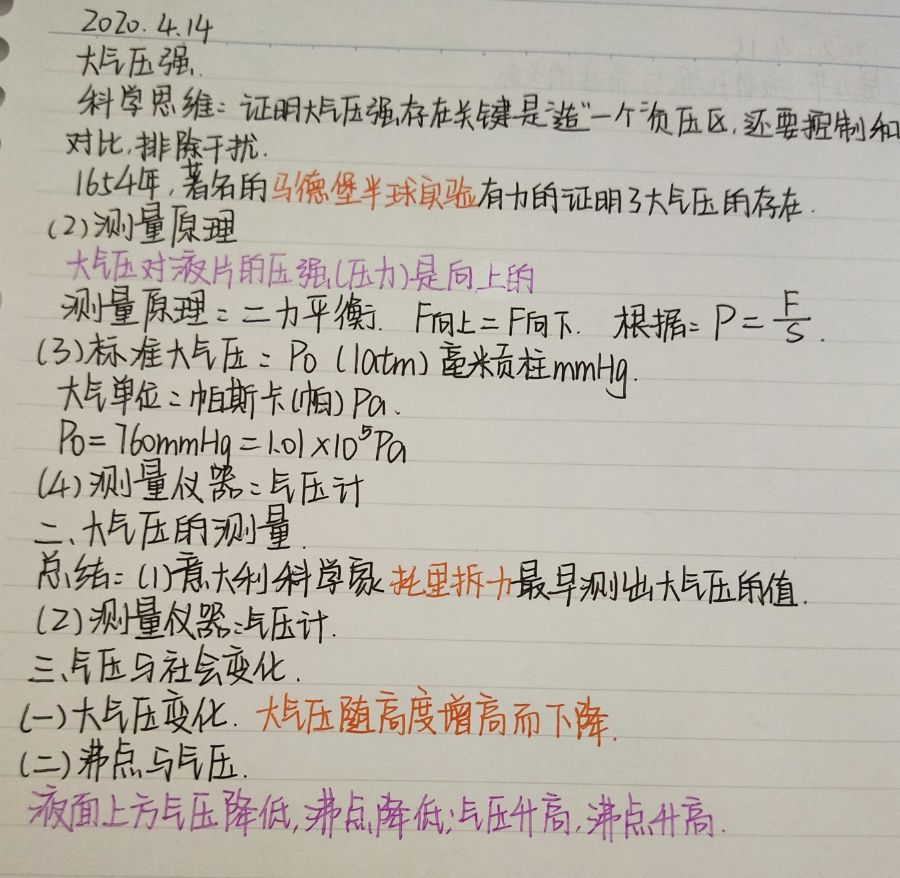 2020.4.14
大气压强.
科学思维：证明大气压强存在关键是"造"一个负压区,还要控制和
对比,排除干扰.
1654年,著名的马德堡半球实验有力的证明了大气压的存在.
(2)测量原理
大气压对液片的压强(压力)是向上的
测量原理：二力平衡. F向上=F向下. 根据：P=F/S.
(3)标准大气压：P0 (1atm) 毫米贡柱mmHg.
大气单位：帕斯卡(帕) Pa.
P0=760mmHg=1.01×10⁵Pa
(4)测量仪器：气压计
二、大气压的测量.
总结：(1)意大利科学家托里拆力最早测出大气压的值.
(2)测量仪器：气压计.
三、气压与社会变化.
(一)大气压变化. 大气压随高度增高而下降.
(二)沸点与气压.
液面上方气压降低,沸点降低;气压升高,沸点升高.